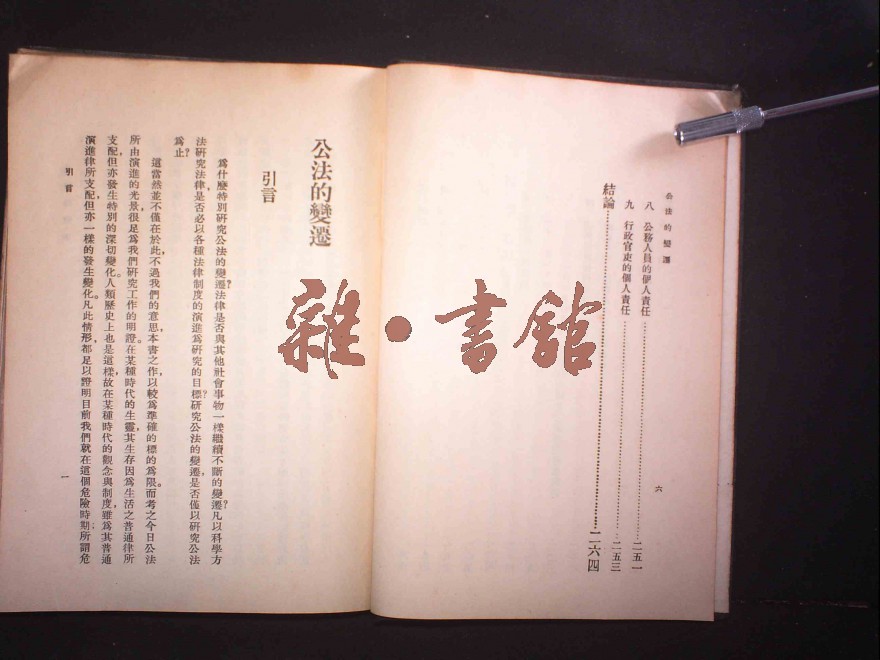 公法的變遷
八 公務人員的個人責任……二五一
九 行政官吏的個人責任……二五三
結論……二六四
六
公法的變遷
引言
爲什麼特別研究公法的變遷?法律是否與其他社會事物一樣繼續不斷的變遷?凡以科學方
法研究法律,是否必以各種法律制度的演進爲研究的目標?研究公法的變遷,是否僅以研究公法
爲止?
這當然並不僅在於此,不過我們的意思,本書之作,以較爲準確的標的爲限。而考之今日公法
所由演進的光景,很足爲我們研究工作的明證。在某種時代的生靈,其生存因爲生活之普通律所
支配,但亦發生特別的深切變化。人類歷史上也是這樣,故在某種時代的觀念與制度,雖爲其普通
演進律所支配,但亦一樣的發生變化。凡此情形,都足以證明目前我們就在這個危險時期;所謂危
引言
一
雜•書館